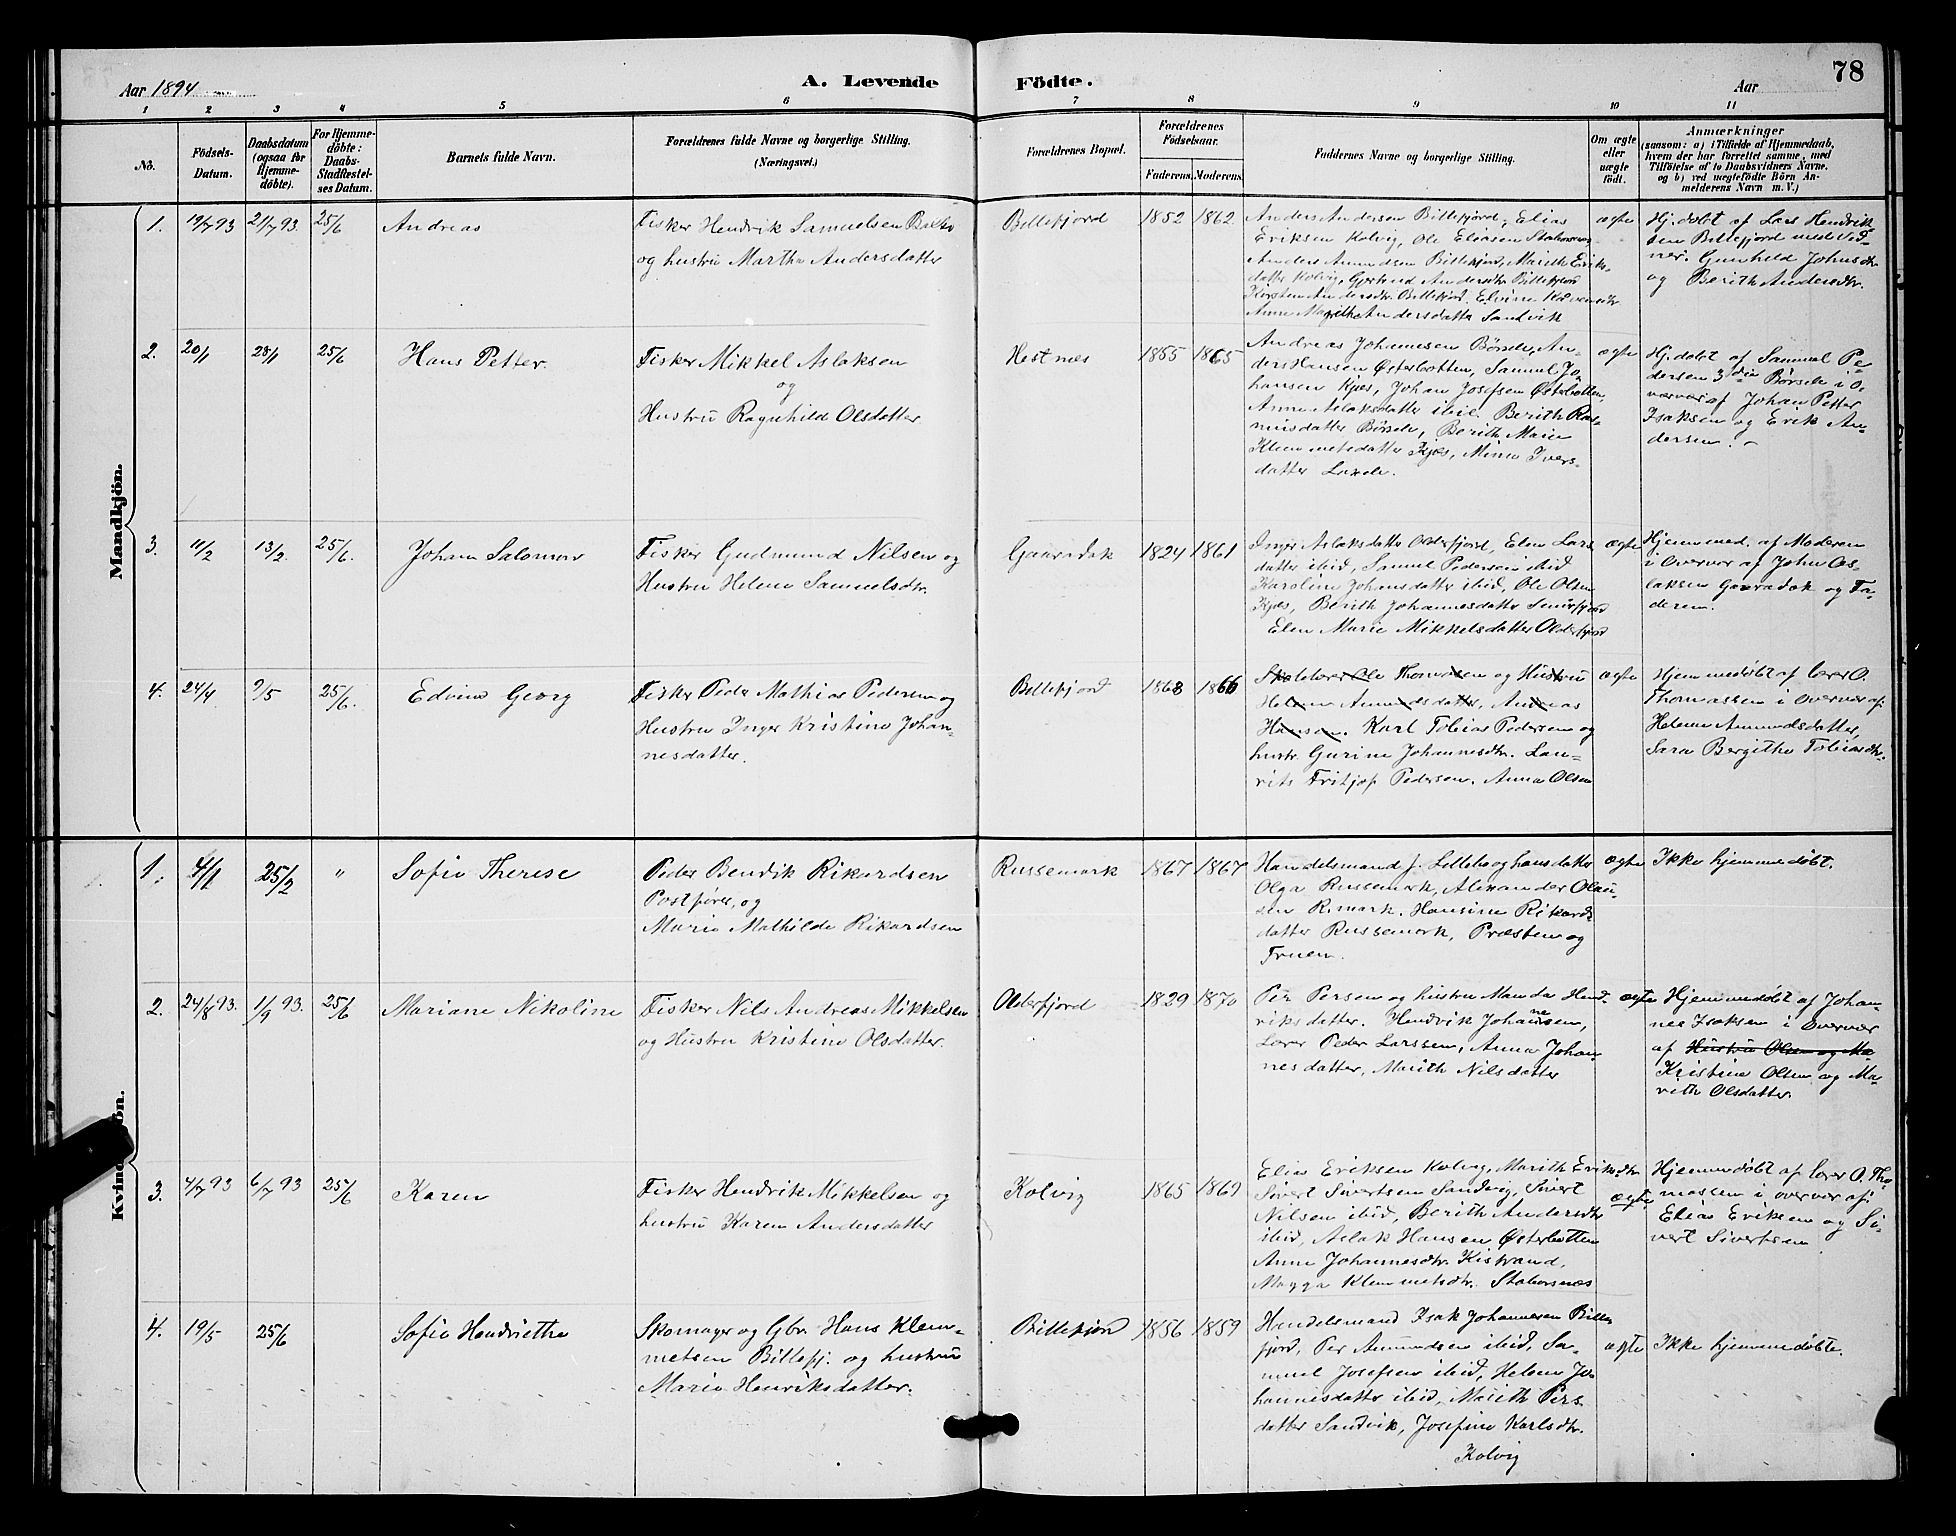 78
Aar 1894
A. Levende
Födte.
Aar
1 2 3 4 5 6 7 8 9 10 11
No.
Födsels-
Datum.
Daabsdatum
(ogsaa for
Hjemme-
döbte).
For Hjemme-
döbte:
Daabs-
Stadfæstel-
ses Datum.
Barnets fulde Navn.
Forældrenes fulde Navne og borgerlige Stilling.
(Næringsvei.)
Forældrenes Bopæl.
Forældrenes
Födselsaar.
Faderens. Moderens.
Faddernes Navne og borgerlige Stilling.
Om ægte
eller
uægte
födt.
Anmærkninger
(saasom: a) i Tilfælde af Hjemmedaab,
hvem der har forrettet samme, med
Tilföielse af to Daabsvidners Navne,
og b) ved uægtefödte Börn An-
melderens Navn m. V.)
Mandkjön.
1. 19/7 93 21/7 93. 25/6 Andreas
Fisker Hendrik Samuelsen
og hustru Martha Andersdatter
Billefjord 1852 1862
Anders Andersen Billefjord, Elias
Eriksen Kolvig, Ole Eliasen
Anders Amundsen Billefjord, Marith Eriks-
datter Kolvig, Andersdtr Billefjord
Kirsten Andersdtr. Billefjord,
Anne Andersdatter Sandvik
ægte
Hj. døbt af Lars Hendrik
sen Billefjord med Vid-
ner. Gunhild Johnsdtr
og Berith Andersdtr.
2. 20/1 28/1 25/6 Hans Petter.
Fisker Mikkel Aslaksen
og
Hustru Ragnhild Olsdatter
Hestnes 1855 1865
Andreas Johannesen Børsele, An-
ders Hansen Østerbotten, Samuel Jo-
hansen Kjæs, Johan Josefsen Østerbotten,
Anne Aslaksdatter ibid. Berith Ras-
musdatter Børsele, Berith Marie
Klemmetsdatter Kjæs, Minna Ivers-
datter Laxele.
ægte
Hj. døbt af Samuel Pe-
dersen Børsele i O-
vervær af Johan Petter
Isaksen og Erik An-
dersen.
3. 11/2 13/2. 25/6. Johan Salomon
Fisker Gudmund Nilsen og
Hustru Helene Samuelsdtr.
Gaaradak 1824 1861
Inger Aslaksdatter Olderfjord, Elen Lars
datter ibid, Samuel Pedersen ibid
Karoline Johansdatter ibid, Ole Olsen
Kjæs, Berith Johannesdatter Smørfjord
Elen Marie Mikkelsdatter Olderfjord
ægte
Hjemmed. af Moderen
i Overvær af John As-
laksen Gaaradak og Fa-
deren.
4. 24/4 9/5 25/6. Edvin Georg
Fisker Peder Mathias Pedersen og
Hustru Inger Kristine Johan-
nesdatter.
Billefjord 1868 1866
Skolelærer Ole Thomasen og Hustru
Helene Amundsdatter, Andreas
Hansen. Karl Tobias Pedersen og
hustr. Gurine Johannesdtr. Lau-
rits Fritjof Pedersen. Anna Olsen
ægte
Hjemmedøbt af lærer O.
Thomassen i Overvær af:
Helene Amundsdatter,
Sara Bergitha Tobiasdtr.
Kvindekjön.
1. 4/1 25/2 " Sofie Therese
Peder Bendik Rikardsen
Postfører, og
Marie Mathilde Rikardsen
Russemark 1867 1867
Handelsmand J. Lillebo og hans datter
Olga Russemark, Alexander Olau-
sen R.mark. Hansine Rikards
datter Russemark, Præsten og
Fruen.
ægte
Ikke hjemmedøbt.
2. 24/8 93. 1/9 93. 25/6 Mariane Nikoline
Fisker Nils Andreas Mikkelsen
og Hustru Kristine Olsdatter.
Olderfjord 1829 1870
Per Persen og hustru Manda Hend-
riksdatter. Hendrik Johannesen,
Lærer Peder Larssen, Anna Johan
nesdatter, Marith Nilsdatter
ægte
Hjemmedøbt af Johan-
nes Isaksen i Overvær
af Hustru Olsen og Ma
Kristine Olsen og Ma-
rith Olsdatter.
3. 4/7 93 6/7 93 25/6 Karen
Fisker Hendrik Mikkelsen og
hustru Karen Andersdatter
Kolvig 1865 1869
Elias Eriksen Kolvig, Marith Eriksdtr
Sivert Sivertsen Sandvig, Sivert
Nilsen ibid, Berith Andersdtr
ibid, Aslak Hansen Østerbotten
Anne Johannesdtr. Kistrand,
Magga Klemmetsdtr. Stabursnæs
ægte
Hjemmedøbt af lærer O. Tho
massen i overvær af:
Elias Eriksen og Si-
vert Sivertsen
4. 19/5 25/6 Sofie Hendriette
Skomager og Gbr. Hans Klem-
metsen Billefj. og hustru
Marie Henriksdatter.
Billefjord 1856 1859
Handelsmand Isak Johannesen Bille
fjord, Per Amundsen ibid, Sa-
muel Josefsen ibid, Helene Jo
hannesdatter ibid, Marith Pers
datter Sandvik, Josefine Karlsdtr.
Kolvig
ægte
Ikke hjemmedøbt.